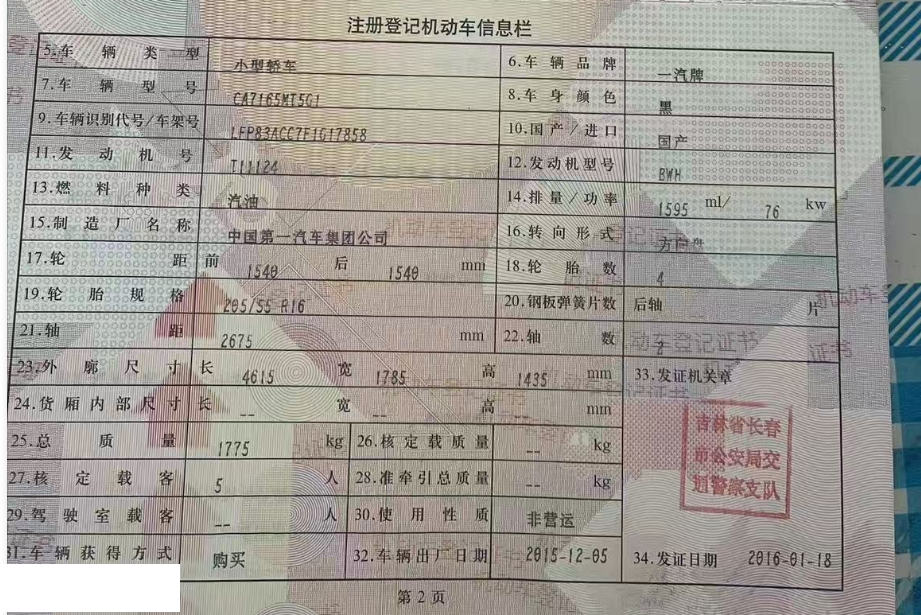 注册登记机动车信息栏
5.车辆类型 小型轿车 6.车辆品牌 一汽牌
7.车辆型号 CA7165MT5G1 8.车身颜色 黑
9.车辆识别代号/车架号 LFP83ACC7F1G17858 10.国产/进口 国产
11.发动机号 T11124 12.发动机型号 BWH
13.燃料种类 汽油 14.排量/功率 1595 ml/ 76 kw
15.制造厂名称 中国第一汽车集团公司 16.转向形式 方向盘
17.轮距 前 1540 后 1540 mm 18.轮胎数 4
19.轮胎规格 205/55 R16 20.钢板弹簧片数 后轴 片
21.轴距 2675 mm 22.轴数 2
23.外廓尺寸 长 4615 宽 1785 高 1435 mm 33.发证机关章
24.货厢内部尺寸 长 -- 宽 -- 高 -- mm
25.总质量 1775 kg 26.核定载质量 -- kg
27.核定载客 5 人 28.准牵引总质量 -- kg
29.驾驶室载客 -- 人 30.使用性质 非营运
31.车辆获得方式 购买 32.车辆出厂日期 2015-12-05 34.发证日期 2016-01-18
吉林省长春
市公安局交
通警察支队
第2页